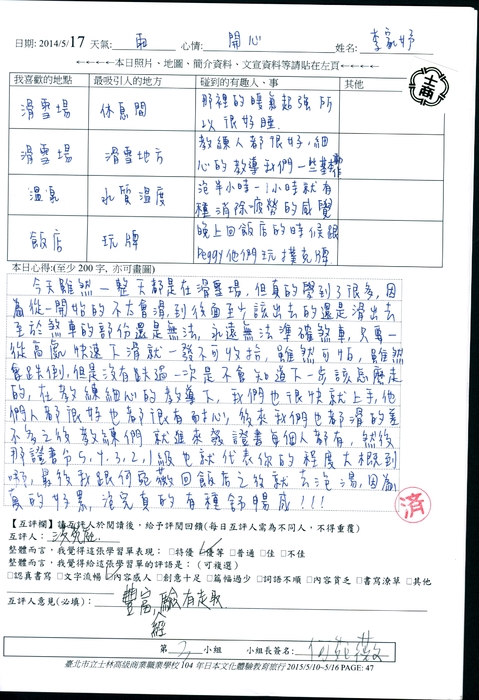 日期: 2014/5/17 天氣: 雨 心情: 開心 姓名:
←←←←←本日照片、地圖、簡介資料、文宣資料等請貼在左頁←←←←←
我喜歡的地點 最吸引人的地方 碰到的有趣人、事 其他
士商
滑雪場 休息間 那裡的暖氣超強所以很好睡.
滑雪場 滑雪地方 教練人都很好,細心的教導我們一些基本動作
溫泉 水質溫度 泡半小時-1小時就有種消除疲勞的感覺
飯店 玩牌 晚上回飯店的時候跟Peggy他們玩撲克牌
本日心得:(至少 200 字, 亦可畫圖)
今天雖然一整天都是在滑雪場,但真的學到了很多,因
為從一開始的不太會滑,到後面至少該出去的還是滑出去
至於煞車的部份還是無法,永遠無法準確煞車,只要一
從高處快速下滑就一發不可收拾,雖然可怕,雖然
會跌倒,但是沒有跌過一次是不會知道下一步該怎麼走
的,在教練細心的教導下,我們也很快就上手,他
們人都很好也都很有耐心,後來我們也都滑的差
不多之後教練們就進來發證書每個人都有,然後
那證書分5,4,3,2,1級也就代表你的程度大概到
哪,最後我跟何宛薇回飯店之後就去泡湯,因為
真的好累,泡完真的有種舒暢感!!!
済
【互評欄】請互評人於閱讀後,給予評閱回饋(每日互評人需為不同人,不得重覆)
互評人:
整體而言,我覺得這張學習單表現: □特優 □優等 □普通 □佳 □不佳
整體而言,我覺得給這張學習單的評語是: (可複選)
□認真書寫 □文字流暢 □內容感人 □創意十足 □篇幅過少 □詞語不順 □內容貧乏 □書寫潦草 □其他
互評人意見(必填):
第 小組 小組長簽名: 何宛薇
臺北市立士林高級商業職業學校 104 年日本文化體驗教育旅行 2015/5/10~5/16 PAGE: 47